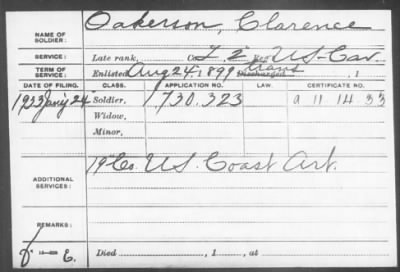 NAME OF SOLDIER: Oakerson, Clarence
SERVICE: Late rank, Co. I, 2 Reg't U.S. Cav.
TERM OF SERVICE: Enlisted Aug 24, 1899 Discharged trans , 1
DATE OF FILING. CLASS. APPLICATION NO. LAW. CERTIFICATE NO.
1923 Jany 24 Soldier, 1,730,323 911 14 33
Widow,
Minor,
ADDITIONAL SERVICES: 79 Co. U.S. Coast Art.
REMARKS:
C. Died , 1 , at